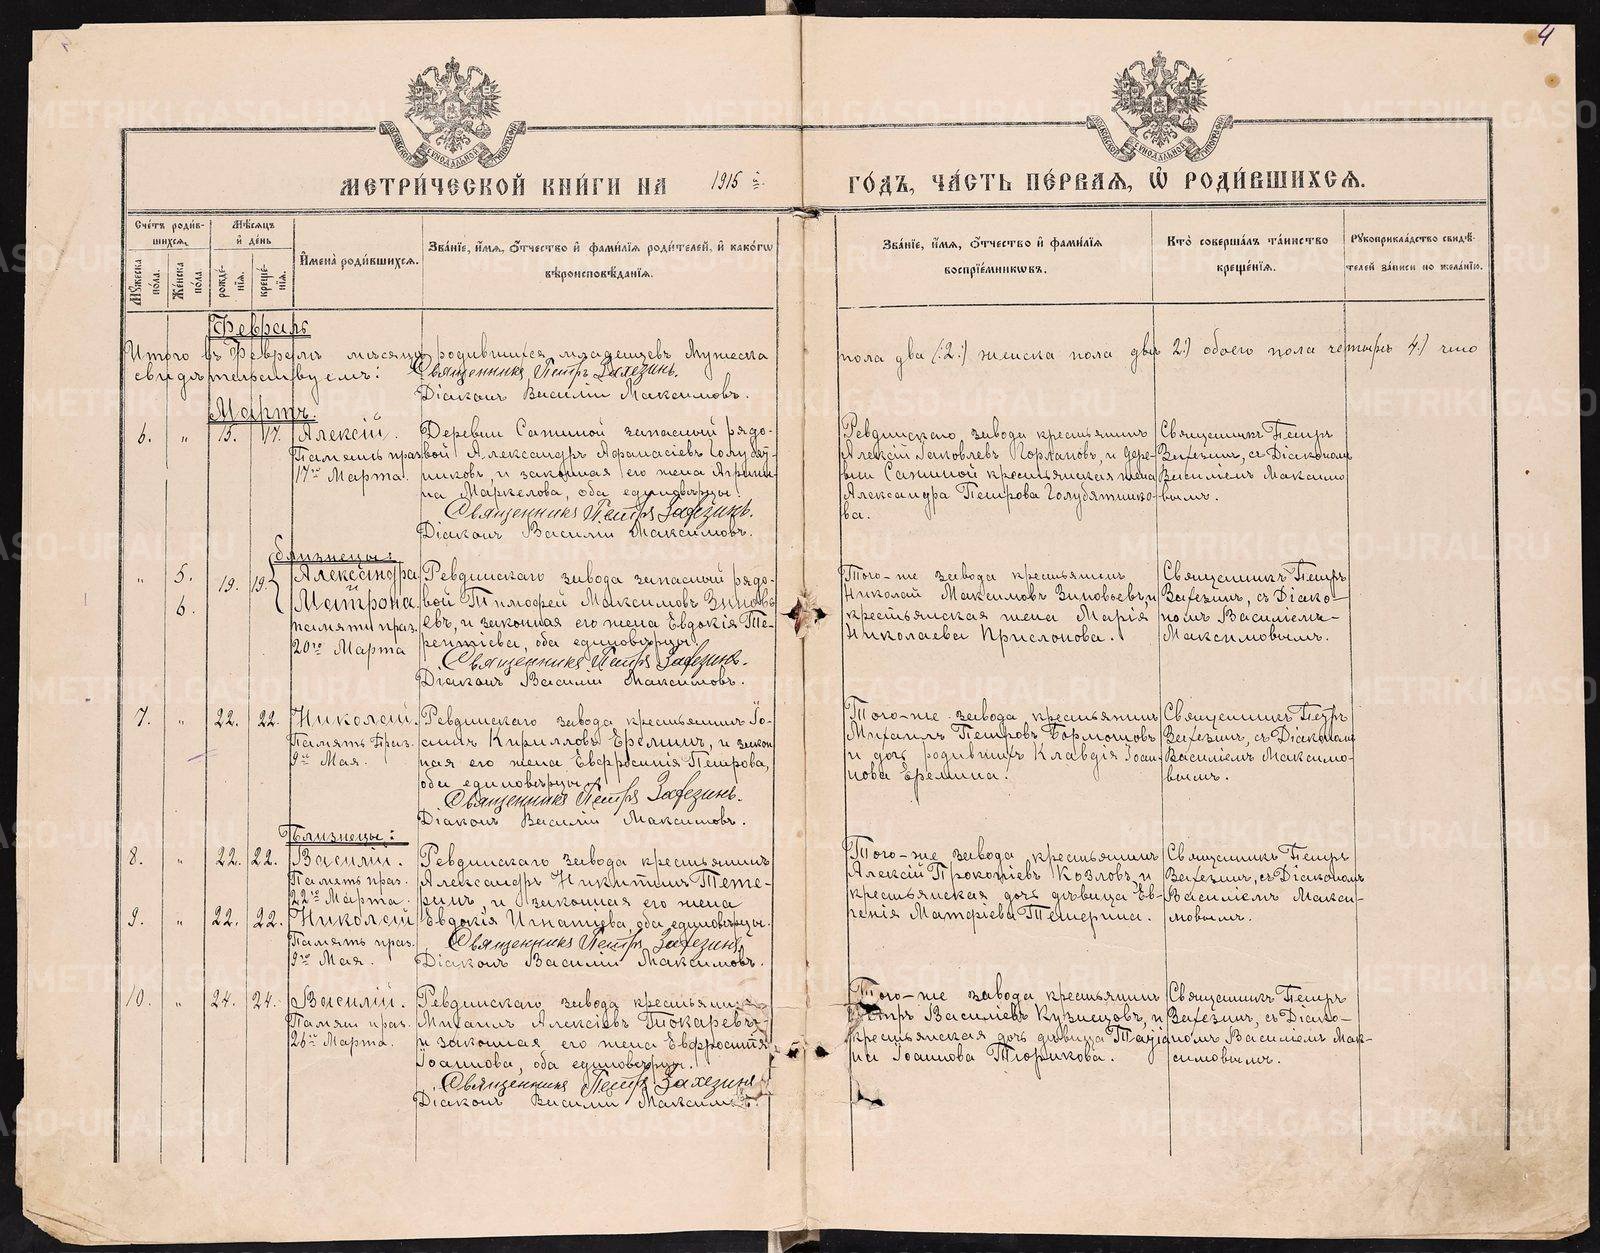 4
МЕТРИ́ЧЕСКОЙ КНИ́ГИ НА 1915 й.
ГО́ДЪ, ЧА́СТЬ ПЕ́РВАѦ, Ѡ҆ РОДИ́ВШИХСѦ.
Сче́тъ роди́в-
шихсѧ.
Мꙋ́жеска по́ла.
Же́нска по́ла.
Мѣ́сѧцъ
и҆ де́нь
рожде́-
нїѧ.
креще́-
нїѧ.
И҆мена̀ роди́вшихсѧ.
Зва́нїе, и҆́мѧ, ѻ҆́тчество и҆ фами́лїѧ роди́телей, и҆ како́гѡ
вѣроисповѣ́данїѧ.
Зва́нїе, и҆́мѧ, ѻ҆́тчество и҆ фами́лїѧ
воспрїе́мникѡвъ.
Кто̀ соверша́лъ та́инство
креще́нїѧ.
Рꙋкоприкла́дство свидѣ́-
телей за́писи по жела́нїю.
Февраль
Итого въ Февралѣ мѣсяцѣ родившихся младенцевъ мужеска
пола два (:2:) женска пола двѣ 2:) обоего пола четыре 4:) что
свидѣтельствуемъ:
Священникъ Петръ Захезинъ.
Діаконъ Василій Максимовъ.
Мартъ.
6. „ 15. 17.
Алексій.
Память праз.
17го Марта.
Деревни Сатиной запасный рядо-
вой Александръ Афанасіевъ Голубят-
никовъ, и законная его жена Агрипи-
на Маркелова, оба единовѣрцы.
Священникъ Петръ Захезинъ.
Діаконъ Василій Максимовъ.
Ревдинскаго завода крестьянинъ
Алексій Іаковлевъ и дере-
вни Сатиной крестьянская жена
Александра Петрова Голубятнико-
ва.
Священникъ Петръ
Захезинъ, съ Діакономъ
Василіемъ Максимо-
вымъ.
близнецы:
„ 5. 19. 19.
6.
Александра
и
Матрона.
память праз.
20го Марта
Ревдинскаго завода запасный рядо-
вой Тимофей Максимовъ Зиновь-
евъ, и законная его жена Евдокія Те-
рентіева, оба единовѣрцы.
Священникъ Петръ Захезинъ.
Діаконъ Василій Максимовъ.
Того-же завода крестьянинъ
Николай Максимовъ Зиновьевъ, и
крестьянская жена Марія
Николаева Прислонова.
Священникъ Петръ
Захезинъ, съ Діако-
номъ Василіемъ
Максимовымъ.
7. „ 22. 22.
Николай.
Память праз.
9го Мая.
Ревдинскаго завода крестьянинъ Іо-
аннъ Кирилловъ Ереминъ, и закон
ная его жена Евфросинія Петрова,
оба единовѣрцы.
Священникъ Петръ Захезинъ.
Діаконъ Василій Максимовъ.
Того-же завода крестьянинъ
Михаилъ Петровъ Бормотовъ
и дочь родившихъ Клавдія Іоан-
нова Еремина.
Священникъ Петръ
Захезинъ, съ Діакономъ
Василіемъ Максимо-
вымъ.
Близнецы:
8. „ 22. 22.
Василій.
Память праз.
22го Марта.
9. „ 22. 22.
Николай
Память праз.
9го Мая.
Ревдинскаго завода крестьянинъ
Александръ Никитинъ Тете-
ринъ, и законная его жена
Евдокія Игнатіева, оба единовѣрцы.
Священникъ Петръ Захезинъ.
Діаконъ Василій Максимовъ.
Того-же завода крестьянинъ
Алексій Прокопіевъ Козловъ, и
крестьянская дочь дѣвица Ев-
генія Матфіева Тетерина.
Священникъ Петръ
Захезинъ, съ Діакономъ
Василіемъ Макси-
мовымъ.
10. „ 24. 24.
Василій.
Памят праз.
26го Марта.
Ревдинскаго завода крестьянинъ
Михаилъ Алексіевъ Токаревъ
и законная его жена Евфросинія
Іоаннова, оба единовѣрцы.
Священникъ Петръ Захезинъ
Діаконъ Василій Максимовъ.
Того-же завода крестьянинъ
Петръ Василіевъ Кузнецовъ, и
крестьянская дочь дѣвица Таті-
на Іоаннова Тюрикова.
Священникъ Петръ
Захезинъ, съ Діако-
номъ Василіемъ Мак-
симовымъ.
METRIKI.GASO-URAL.RU